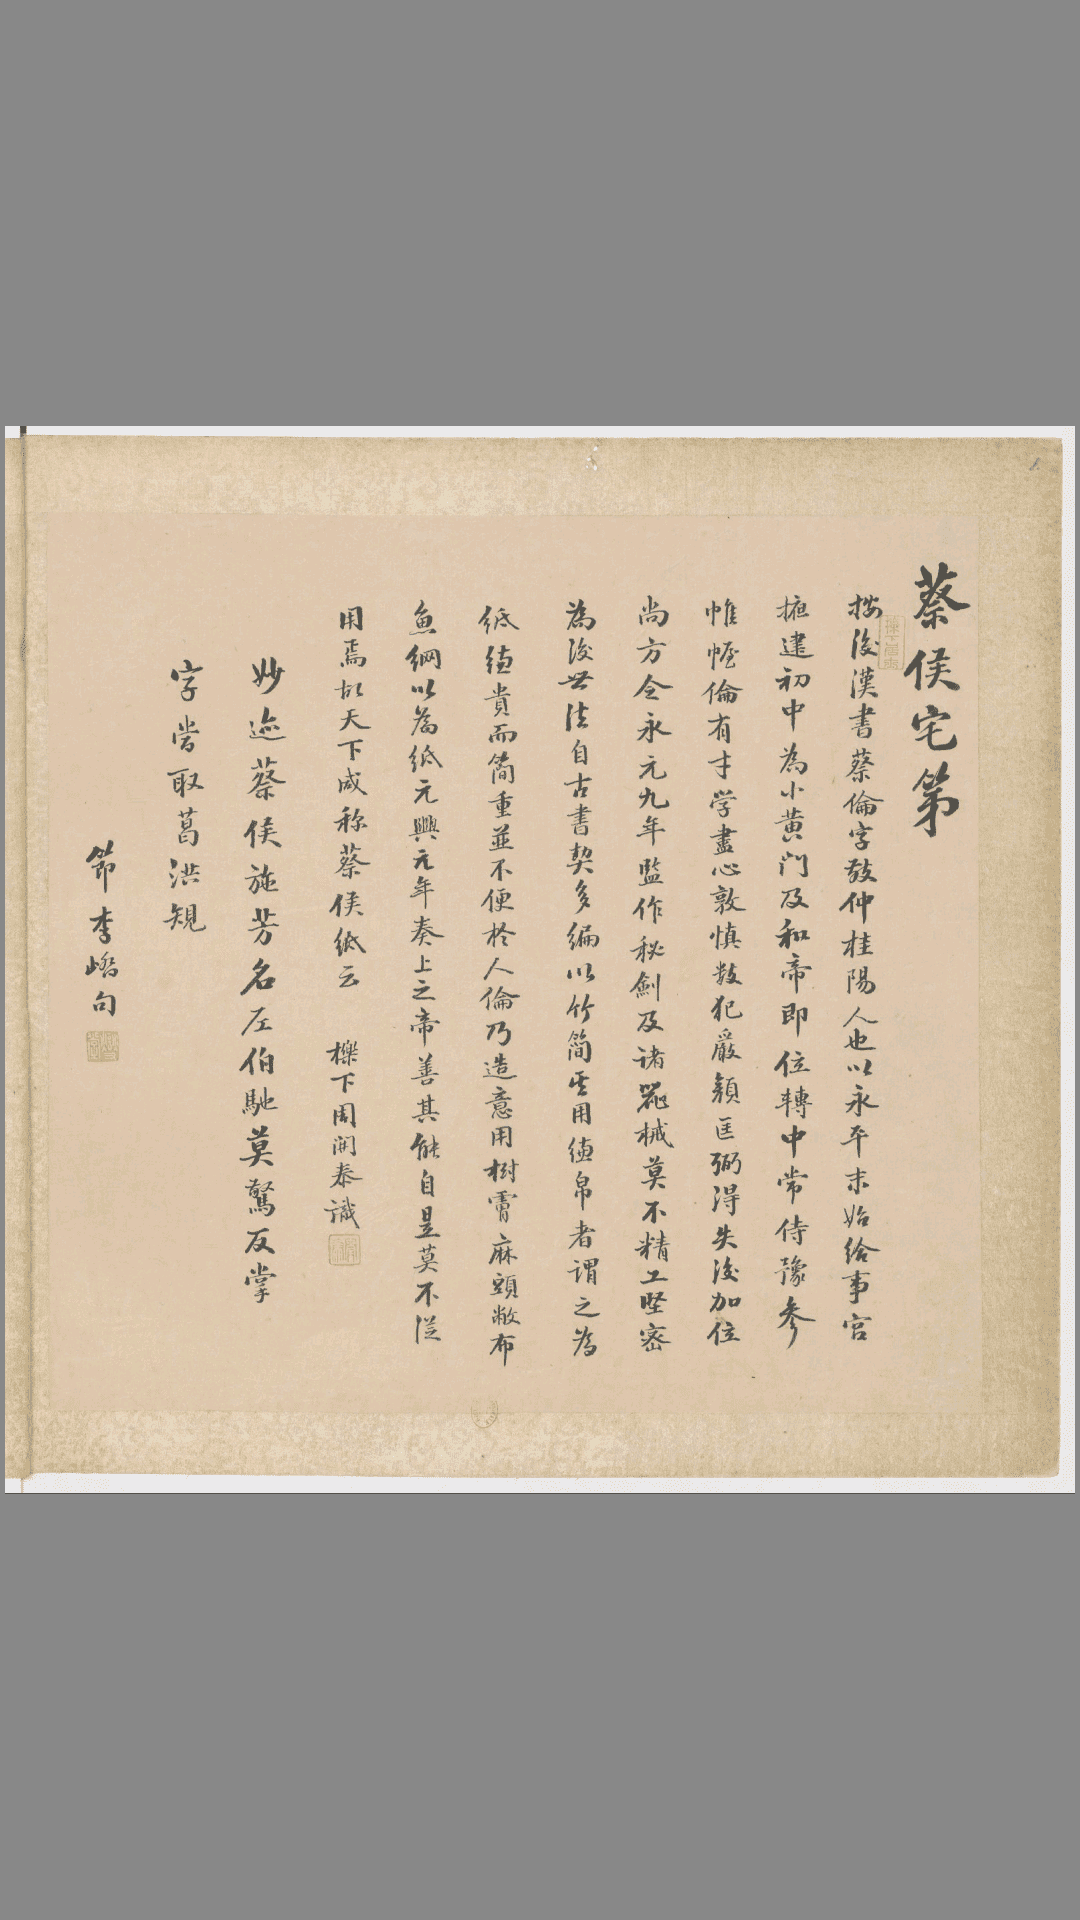 蔡侯宅第
按後漢書蔡倫字敬仲桂陽人也以永平末始給事宮
掖建初中為小黃门及和帝即位轉中常侍豫參
帷幄倫有才学盡心敦慎数犯嚴顏匡弼得失後加位
尚方令永元九年監作秘劍及诸器械莫不精工堅密
為後世法自古書契多編以竹简其用縑帛者謂之為
紙縑貴而简重並不便於人倫乃造意用樹膚麻頭敝布
魚網以為紙元興元年奏上之帝善其能自是莫不從
用焉故天下咸称蔡侯紙云 櫟下周開泰識
妙迹蔡侯施芳名左伯馳莫驚反掌
字當取葛洪規
節李嶠句